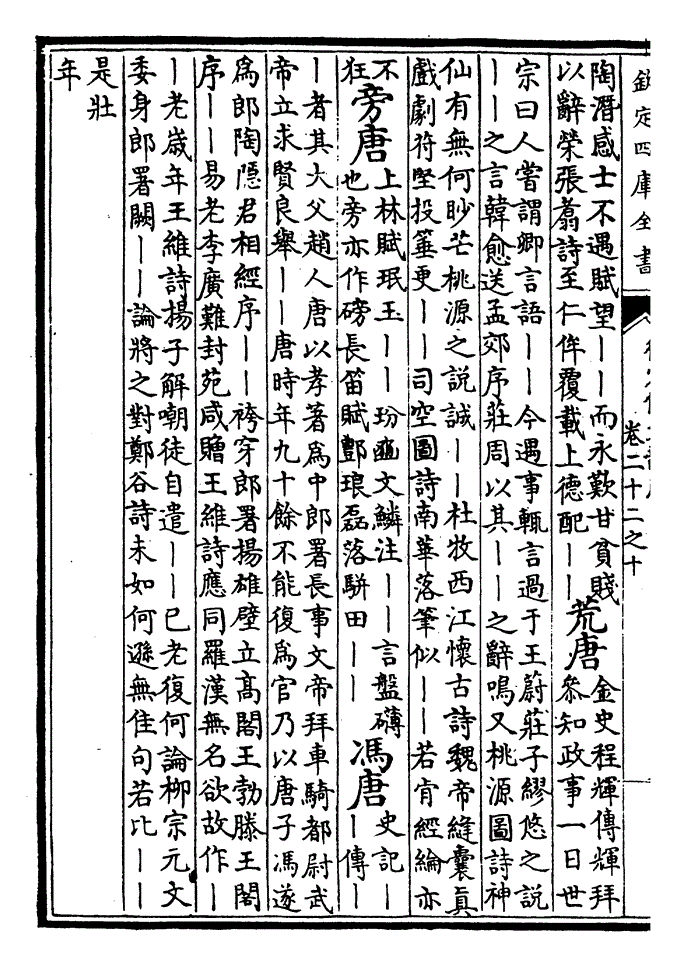 欽定四庫全書
卷二十二之十
陶潛感士不遇賦望——而永歎甘貧賤
以辭榮張翥詩至仁侔覆載上德配——
荒唐
金史程輝傳輝拜
參知政事一日世
宗曰人嘗謂卿言語——今遇事輒言過于王蔚莊子繆悠之說
——之言韓愈送孟郊序莊周以其——之辭鳴又桃源圖詩神
仙有無何眇芒桃源之說誠——杜牧西江懷古詩魏帝縫囊真
戲劇苻堅投箠更——司空圖詩南華落筆似——若肯經綸亦
不
狂
旁唐
上林賦珉玉——玢豳文鱗注——言盤礴
也旁亦作磅長笛賦酆琅磊落駢田——
馮唐
史記—
—傳—
—者其大父趙人唐以孝著爲中郎署長事文帝拜車騎都尉武
帝立求賢良舉——唐時年九十餘不能復爲官乃以唐子馮遂
爲郎陶隱君相經序——袴穿郎署揚雄壁立高閣王勃滕王閣
序——易老李廣難封苑咸贈王維詩應同羅漢無名欲故作—
—老歲年王維詩揚子解嘲徒自遣——已老復何論柳宗元文
委身郎署闕——論將之對鄭谷詩未如何遜無佳句若比——
是壯
年